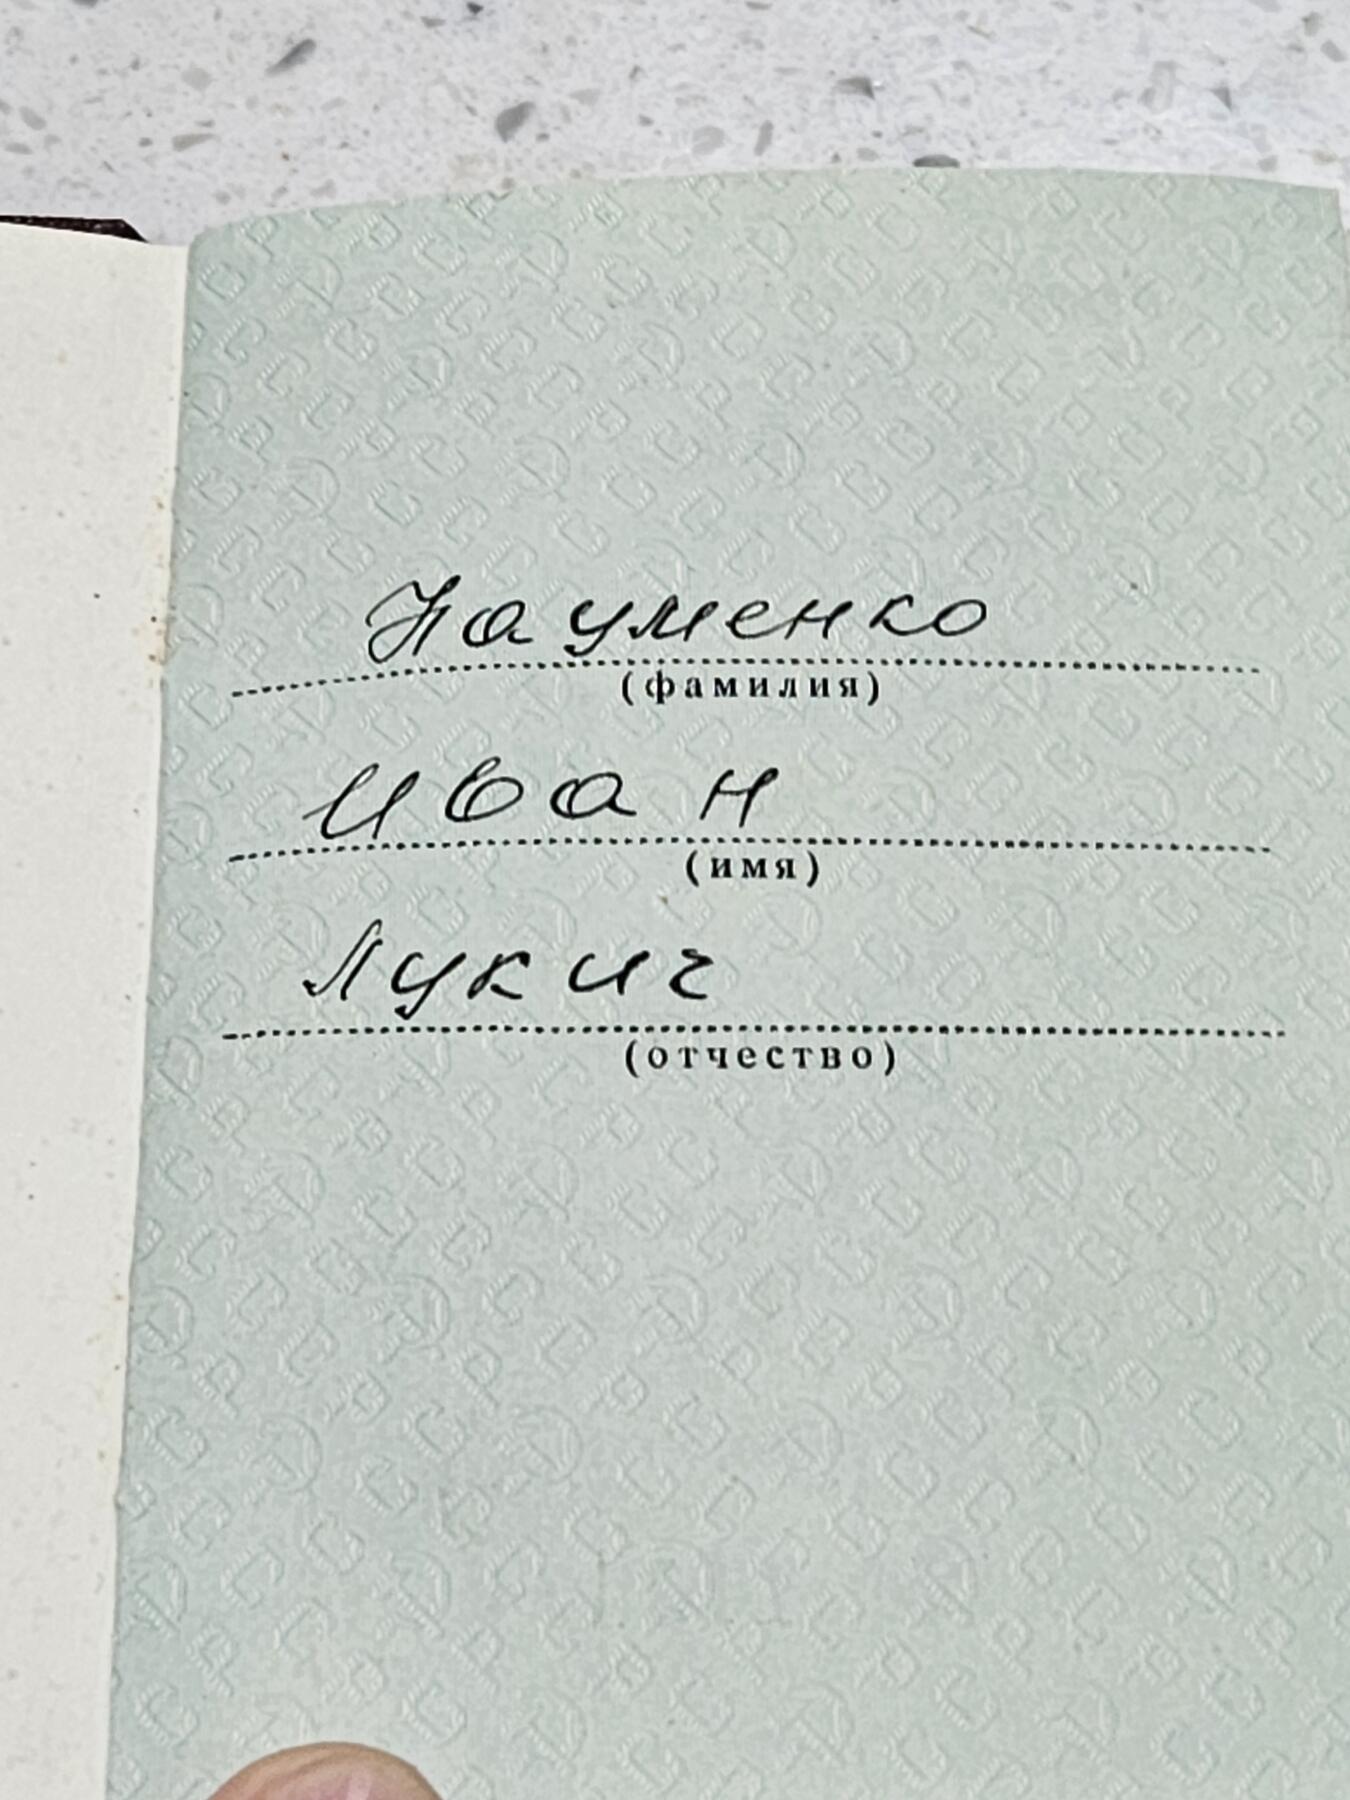 Науменко
(фамилия)
Иван
(имя)
Лукич
(отчество)